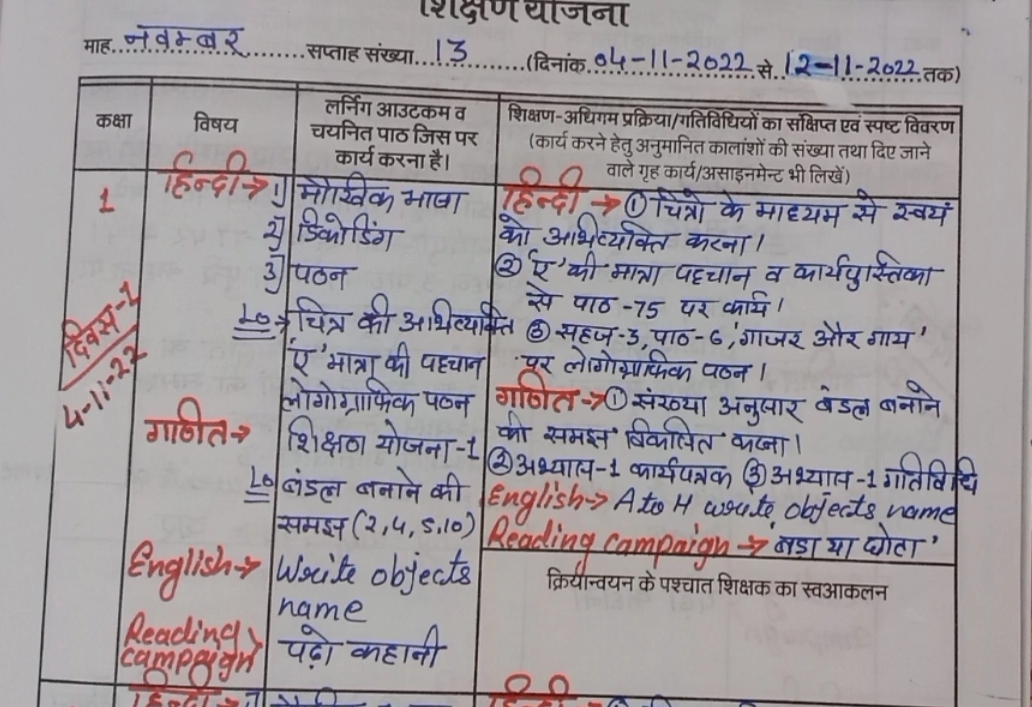 शिक्षण योजना
माह. नवम्बर सप्ताह संख्या 13 (दिनांक 04-11-2022 से 12-11-2022 तक)
कक्षा
विषय
लर्निंग आउटकम व
चयनित पाठ जिस पर
कार्य करना है।
शिक्षण-अधिगम प्रक्रिया/गतिविधियों का संक्षिप्त एवं स्पष्ट विवरण
(कार्य करने हेतु अनुमानित कालांशों की संख्या तथा दिए जाने
वाले गृह कार्य/असाइनमेन्ट भी लिखें)
1
दिवस-1
4-11-22
हिन्दी→
1) मौखिक भाषा
2) डिकोडिंग
3) पठन
LO→ चित्र की अभिव्यक्ति
'ए' मात्रा की पहचान
लोगोग्राफिक पठन
गणित→
शिक्षण योजना-1
LO बंडल बनाने की
समझ (2,4,5,10)
English→
Write objects
name
Reading
campaign
पढ़ो कहानी
हिन्दी → ① चित्रो के माध्यम से स्वयं
को अभिव्यक्ति करना।
② 'ए' की मात्रा पहचान व कार्यपुस्तिका
से पाठ -75 पर कार्य।
③ सहज-3, पाठ-6, 'गाजर और गाय'
पर लोगोग्राफिक पठन।
गणित→① संख्या अनुसार बंडल बनाने
की समझ विकसित करना।
② अभ्यास-1 कार्यपत्रक ③ अभ्यास-1 गतिविधि
English→ A to H write objects name
Reading campaign → 'बड़ा या छोटा'
क्रियान्वयन के पश्चात शिक्षक का स्वआकलन
हिन्दी→
हिन्दी